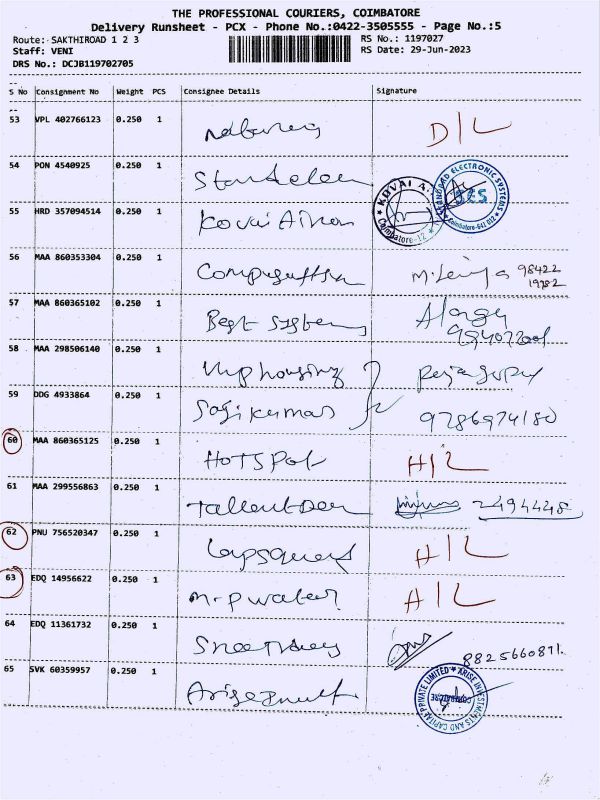 THE PROFESSIONAL COURIERS, COIMBATORE
Delivery Runsheet - PCX - Phone No.:0422-3505555 - Page No.:5
Route: SAKTHIROAD 1 2 3
RS No.: 1197027
Staff: VENI
RS Date: 29-Jun-2023
DRS No.: DCJB119702705
S No Consignment No Weight PCS Consignee Details Signature
53 VPL 402766123 0.250 1 D/L
54 PON 4540925 0.250 1
STANDARD ELECTRONIC SYSTEMS
SES
Coimbatore-641 012
KOVAI A.
Coimbatore-12
55 HRD 357094514 0.250 1 Kovai
56 MAA 860353304 0.250 1 98422
19782
57 MAA 860365102 0.250 1 Best System
58 MAA 298506140 0.250 1 housing
59 DDG 4933864 0.250 1 Sajikumar 9786974180
60 MAA 860365125 0.250 1 HOTSPOT H/L
61 MAA 299556863 0.250 1 2494448
62 PNU 756520347 0.250 1 H/L
63 EDQ 14956622 0.250 1 M.P water H/L
64 EDQ 11361732 0.250 1 8825660871.
65 SVK 60359957 0.250 1
ARISE INVESTMENTS AND CAPITAL PRIVATE LIMITED
COIMBATORE